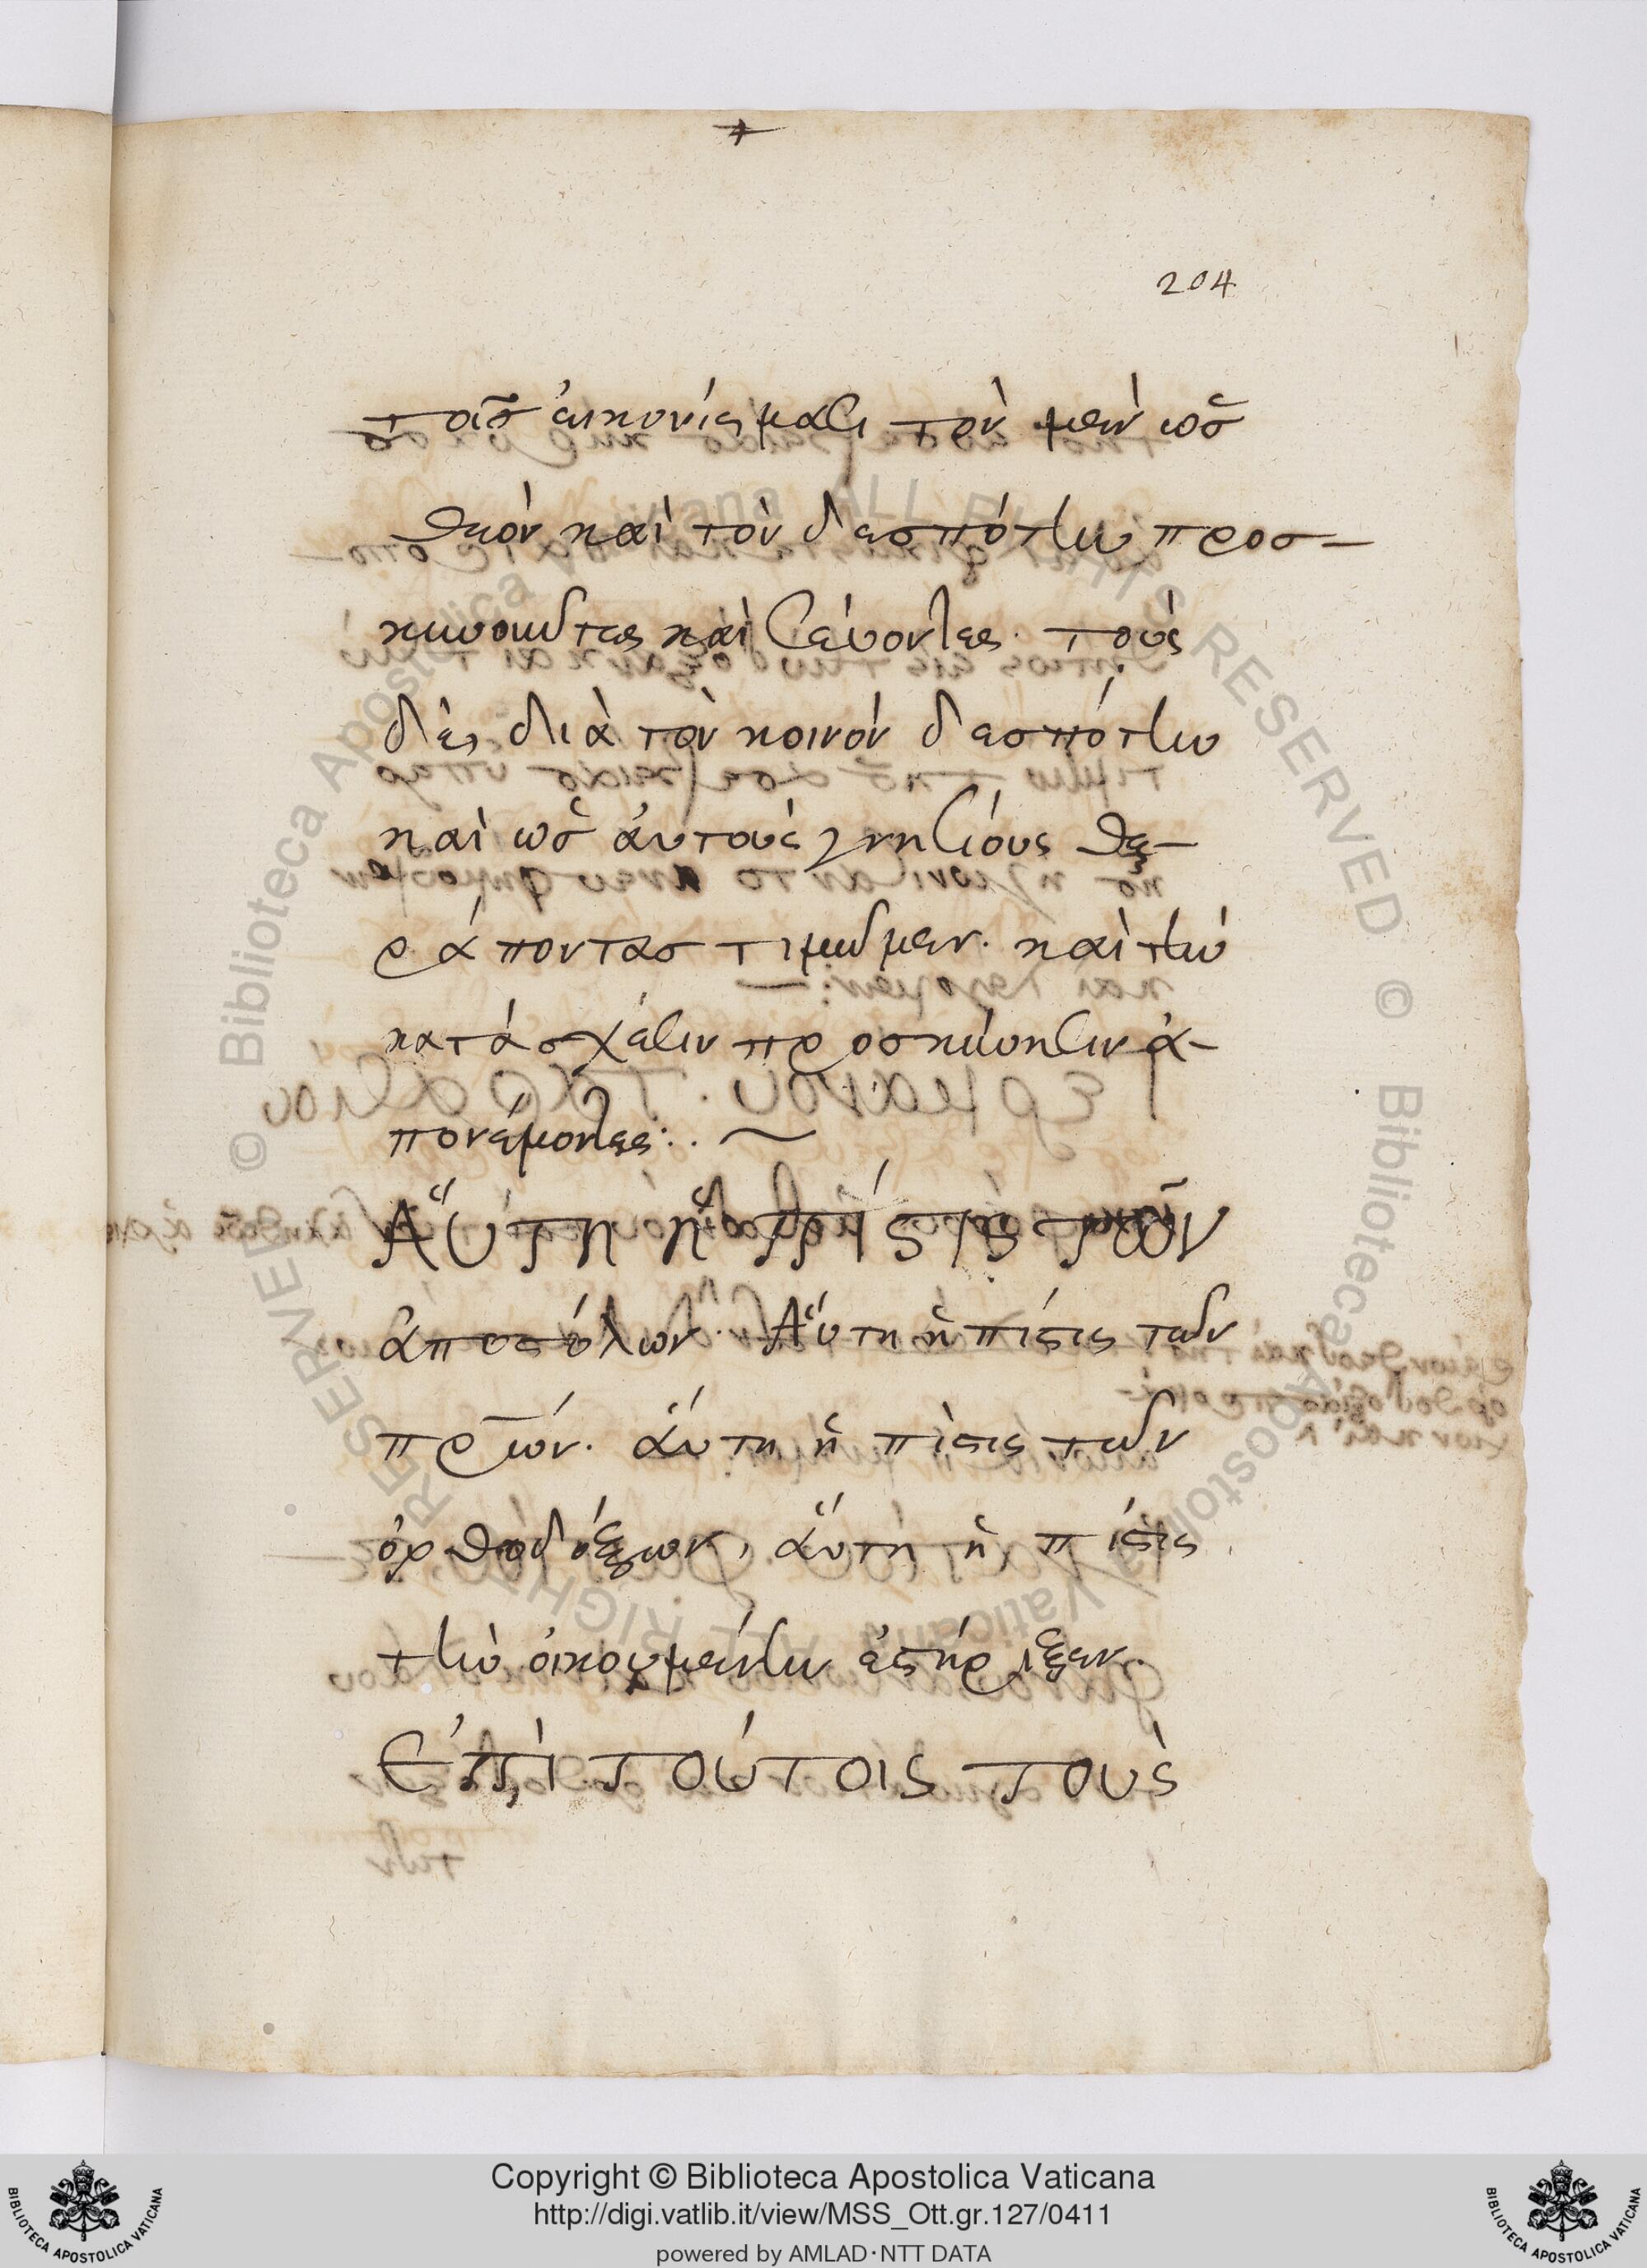 204
τοῖσ εἰκονίσμασι τὸν μὲν ὡσ
θεὸν καὶ τὸν δεσπότην προσ-
κυνοῦντες καὶ σέβοντες· τοὺς
δὲ, διὰ τὸν κοινὸν δεσπότην
καὶ ὡσ ἀυτοὺς γνησίους θε-
ράποντασ τιμῶμεν. καὶ τὴν
κατὰ σχέσιν προσκύνησιν ἀ-
πονέμοντες:. ~
Ἅυτη ἡ πίστις τῶν
ἀποστόλων. Ἅυτη ἡ πίστις τῶν
πρ̅ων. ἅυτη ἡ πίστις τῶν
ὀρθοδόξων, ἅυτη ἡ πίστις
τὴν ὀικουμένην ἐστήριξεν.
Ἐπὶ τούτοις τοὺς
Copyright © Biblioteca Apostolica Vaticana
http://digi.vatlib.it/view/MSS_Ott.gr.127/0411
powered by AMLAD·NTT DATA
BIBLIOTECA APOSTOLICA VATICANA
BIBLIOTECA APOSTOLICA VATICANA
© Biblioteca Apostolica Vaticana ALL RIGHTS RESERVED
© Biblioteca Apostolica Vaticana ALL RIGHTS RESERVED